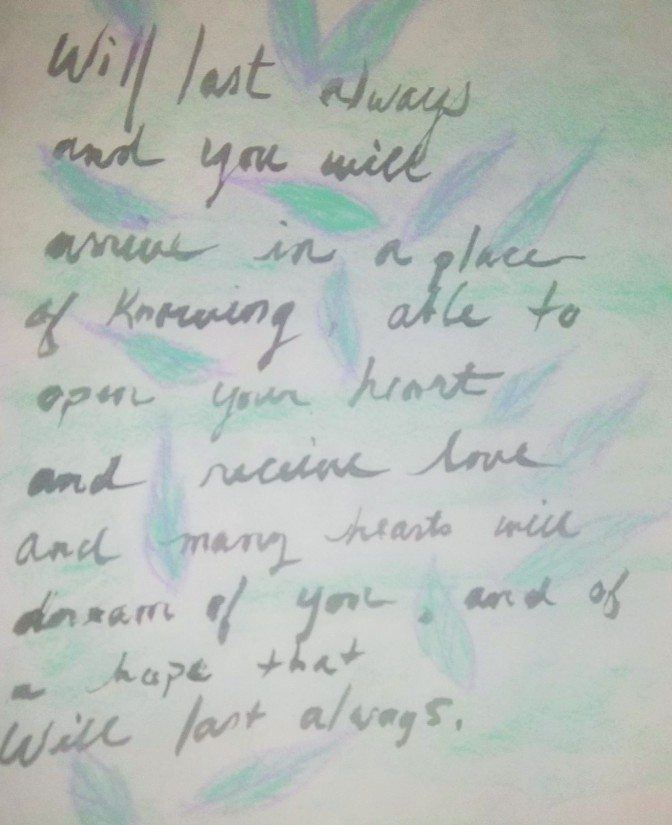 Will last always
and you will
arrive in a place
of Knowing, able to
open your heart
and receive love
and many hearts will
dream of you, and of
a hope that
Will last always.